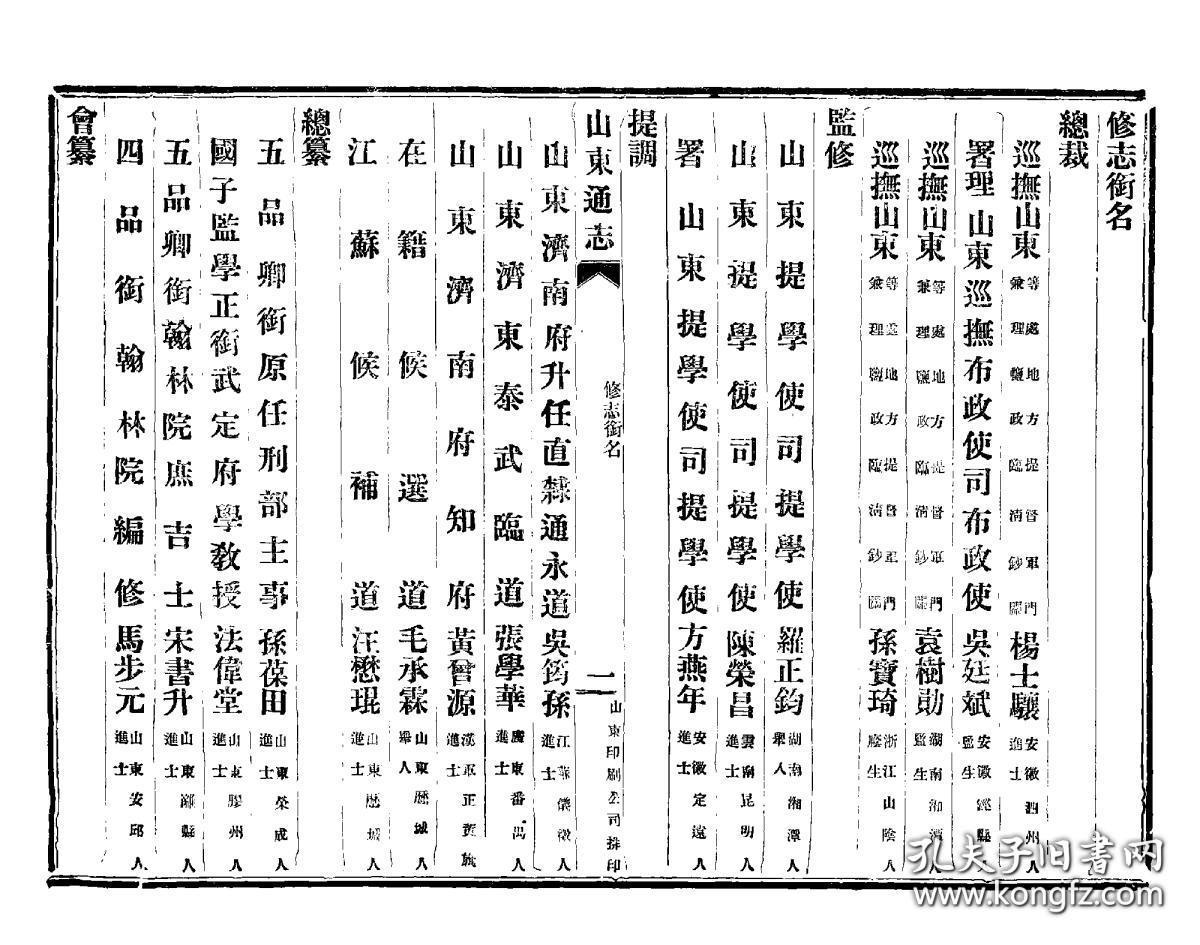 修志銜名
總裁
巡撫山東等處地方提督軍門兼理鹽政臨清鈔關楊士驤安徽泗州人進士
署理山東巡撫布政使司布政使吳廷斌安徽涇縣人監生
巡撫山東等處地方提督軍門兼理鹽政臨清鈔關袁樹勛湖南湘潭人監生
巡撫山東等處地方提督軍門兼理鹽政臨清鈔關孫寶琦浙江山陰人廕生
監修
山東提學使司提學使羅正鈞湖南湘潭人舉人
山東提學使司提學使陳榮昌雲南昆明人進士
署山東提學使司提學使方燕年安徽定遠人進士
提調
山東通志
修志銜名
一
山東印刷公司排印
山東濟南府升任直隸通永道吳筠孫江蘇儀徵人進士
山東濟東泰武臨道張學華廣東番禺人進士
山東濟南府知府黃曾源漢軍正黃旗進士
在籍候選道毛承霖山東歷城人舉人
江蘇候補道汪懋琨山東歷城人進士
總纂
五品卿銜原任刑部主事孫葆田山東榮成人進士
國子監學正銜武定府學教授法偉堂山東膠州人進士
五品卿銜翰林院庶吉士宋書升山東濰縣人進士
四品銜翰林院編修馬步元山東安邱人進士
會纂
孔夫子旧書网
www.kongfz.com